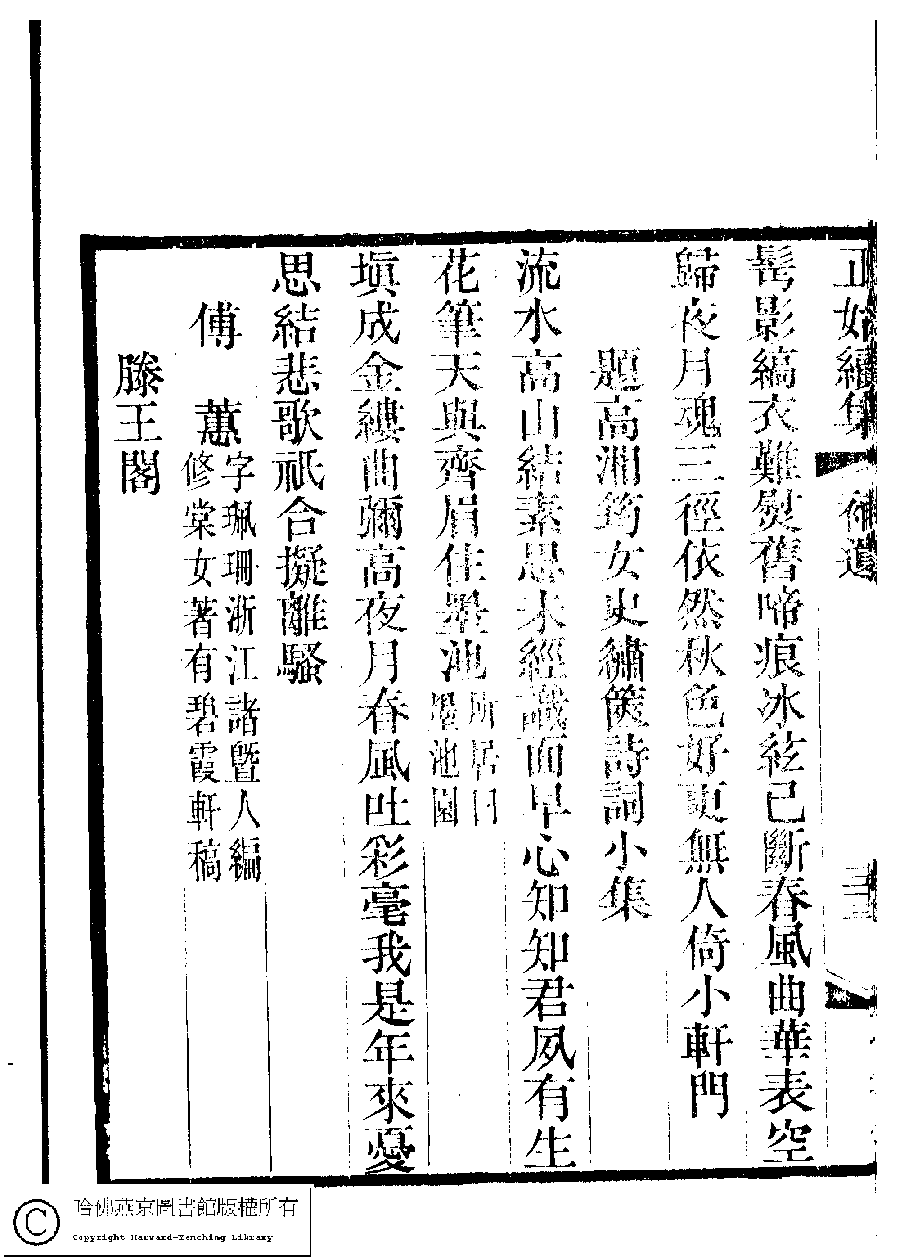 正始續集 補遺
髩影縞衣難熨舊啼痕冰絃已斷春風曲華表空
歸夜月魂三徑依然秋色好更無人倚小軒門
題高湘筠女史繡篋詩詞小集
流水高山結素思未經識面早心知知君夙有生
花筆天與齊眉住墨池所居曰墨池園
塡成金縷曲彌高夜月春風吐彩毫我是年來憂
思結悲歌祇合擬離騷
傅蕙字珮珊浙江諸曁人編修棠女著有碧霞軒稿
滕王閣
哈佛燕京圖書館版權所有
Copyright Harvard-Yenching Library